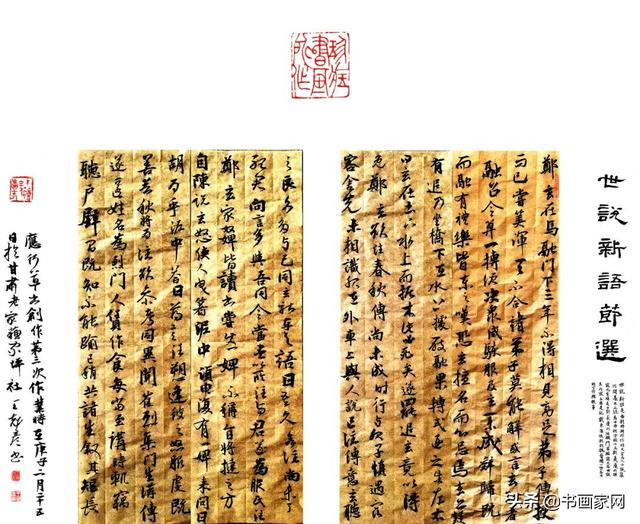 世說新語節選
鄭玄在馬融門下三年不得相見高足弟子傳授
而已嘗算渾天不合諸弟子莫能解或言玄者
融召令算一轉便決衆咸駭服及玄業成辭歸既
而融有禮樂皆東之嘆恐玄擅名而心忌焉玄亦疑
有追乃坐橋下在水上據屐融果轉式逐之告左右
曰玄在土下水上而據木此必死矣遂罷追玄竟以得
免鄭玄欲注春秋傳尚未成時行与服子慎遇宿
客舍先未相識服在外車上與人說己注傳意玄聽
之良久多与己同玄就車与語曰吾久欲注尚未了
聽君向言多與吾同今當盡以所注与君遂爲服氏注
鄭玄家婢皆讀書嘗使一婢不稱旨將撻之方
自陳說玄怒使人曳著泥中須臾復有一婢來問曰
胡爲乎泥中答曰薄言往愬逢彼之怒服虔既
善春秋將爲注欲參考同異聞崔烈集門生講傳
遂匿姓名爲烈門人賃作食每當至講時輒竊
聽戶壁間既知不能踰己稍共諸生敘其短長
應行草書創作第三次作業時在庚子二月廿五
日於甘肅老家 家坪社王 彥書
头条 @书画家网